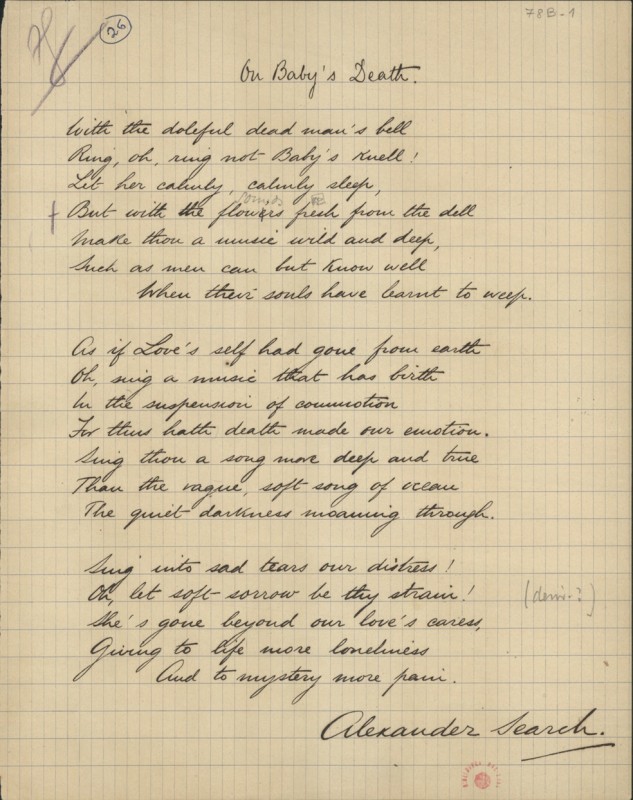 78B-1
26
On Baby's Death.
With the doleful dead man's bell
Ring, oh, ring not Baby's knell!
Let her calmly, calmly sleep,
But with the flowers fresh from the dell
Make thou a music wild and deep,
Such as men can but know well
When their souls have learnt to weep.
As if Love's self had gone from earth
Oh, sing a music that has birth
In the suspension of commotion
For thus hath death made our emotion.
Sing thou a song more deep and true
Than the vague, soft song of ocean
The quiet darkness moaning through.
Sing into sad tears our distress!
Oh, let soft sorrow be thy strain!
(demi-?)
She's gone beyond our love's caress,
Giving to life more loneliness
And to mystery more pain.
Alexander Search.